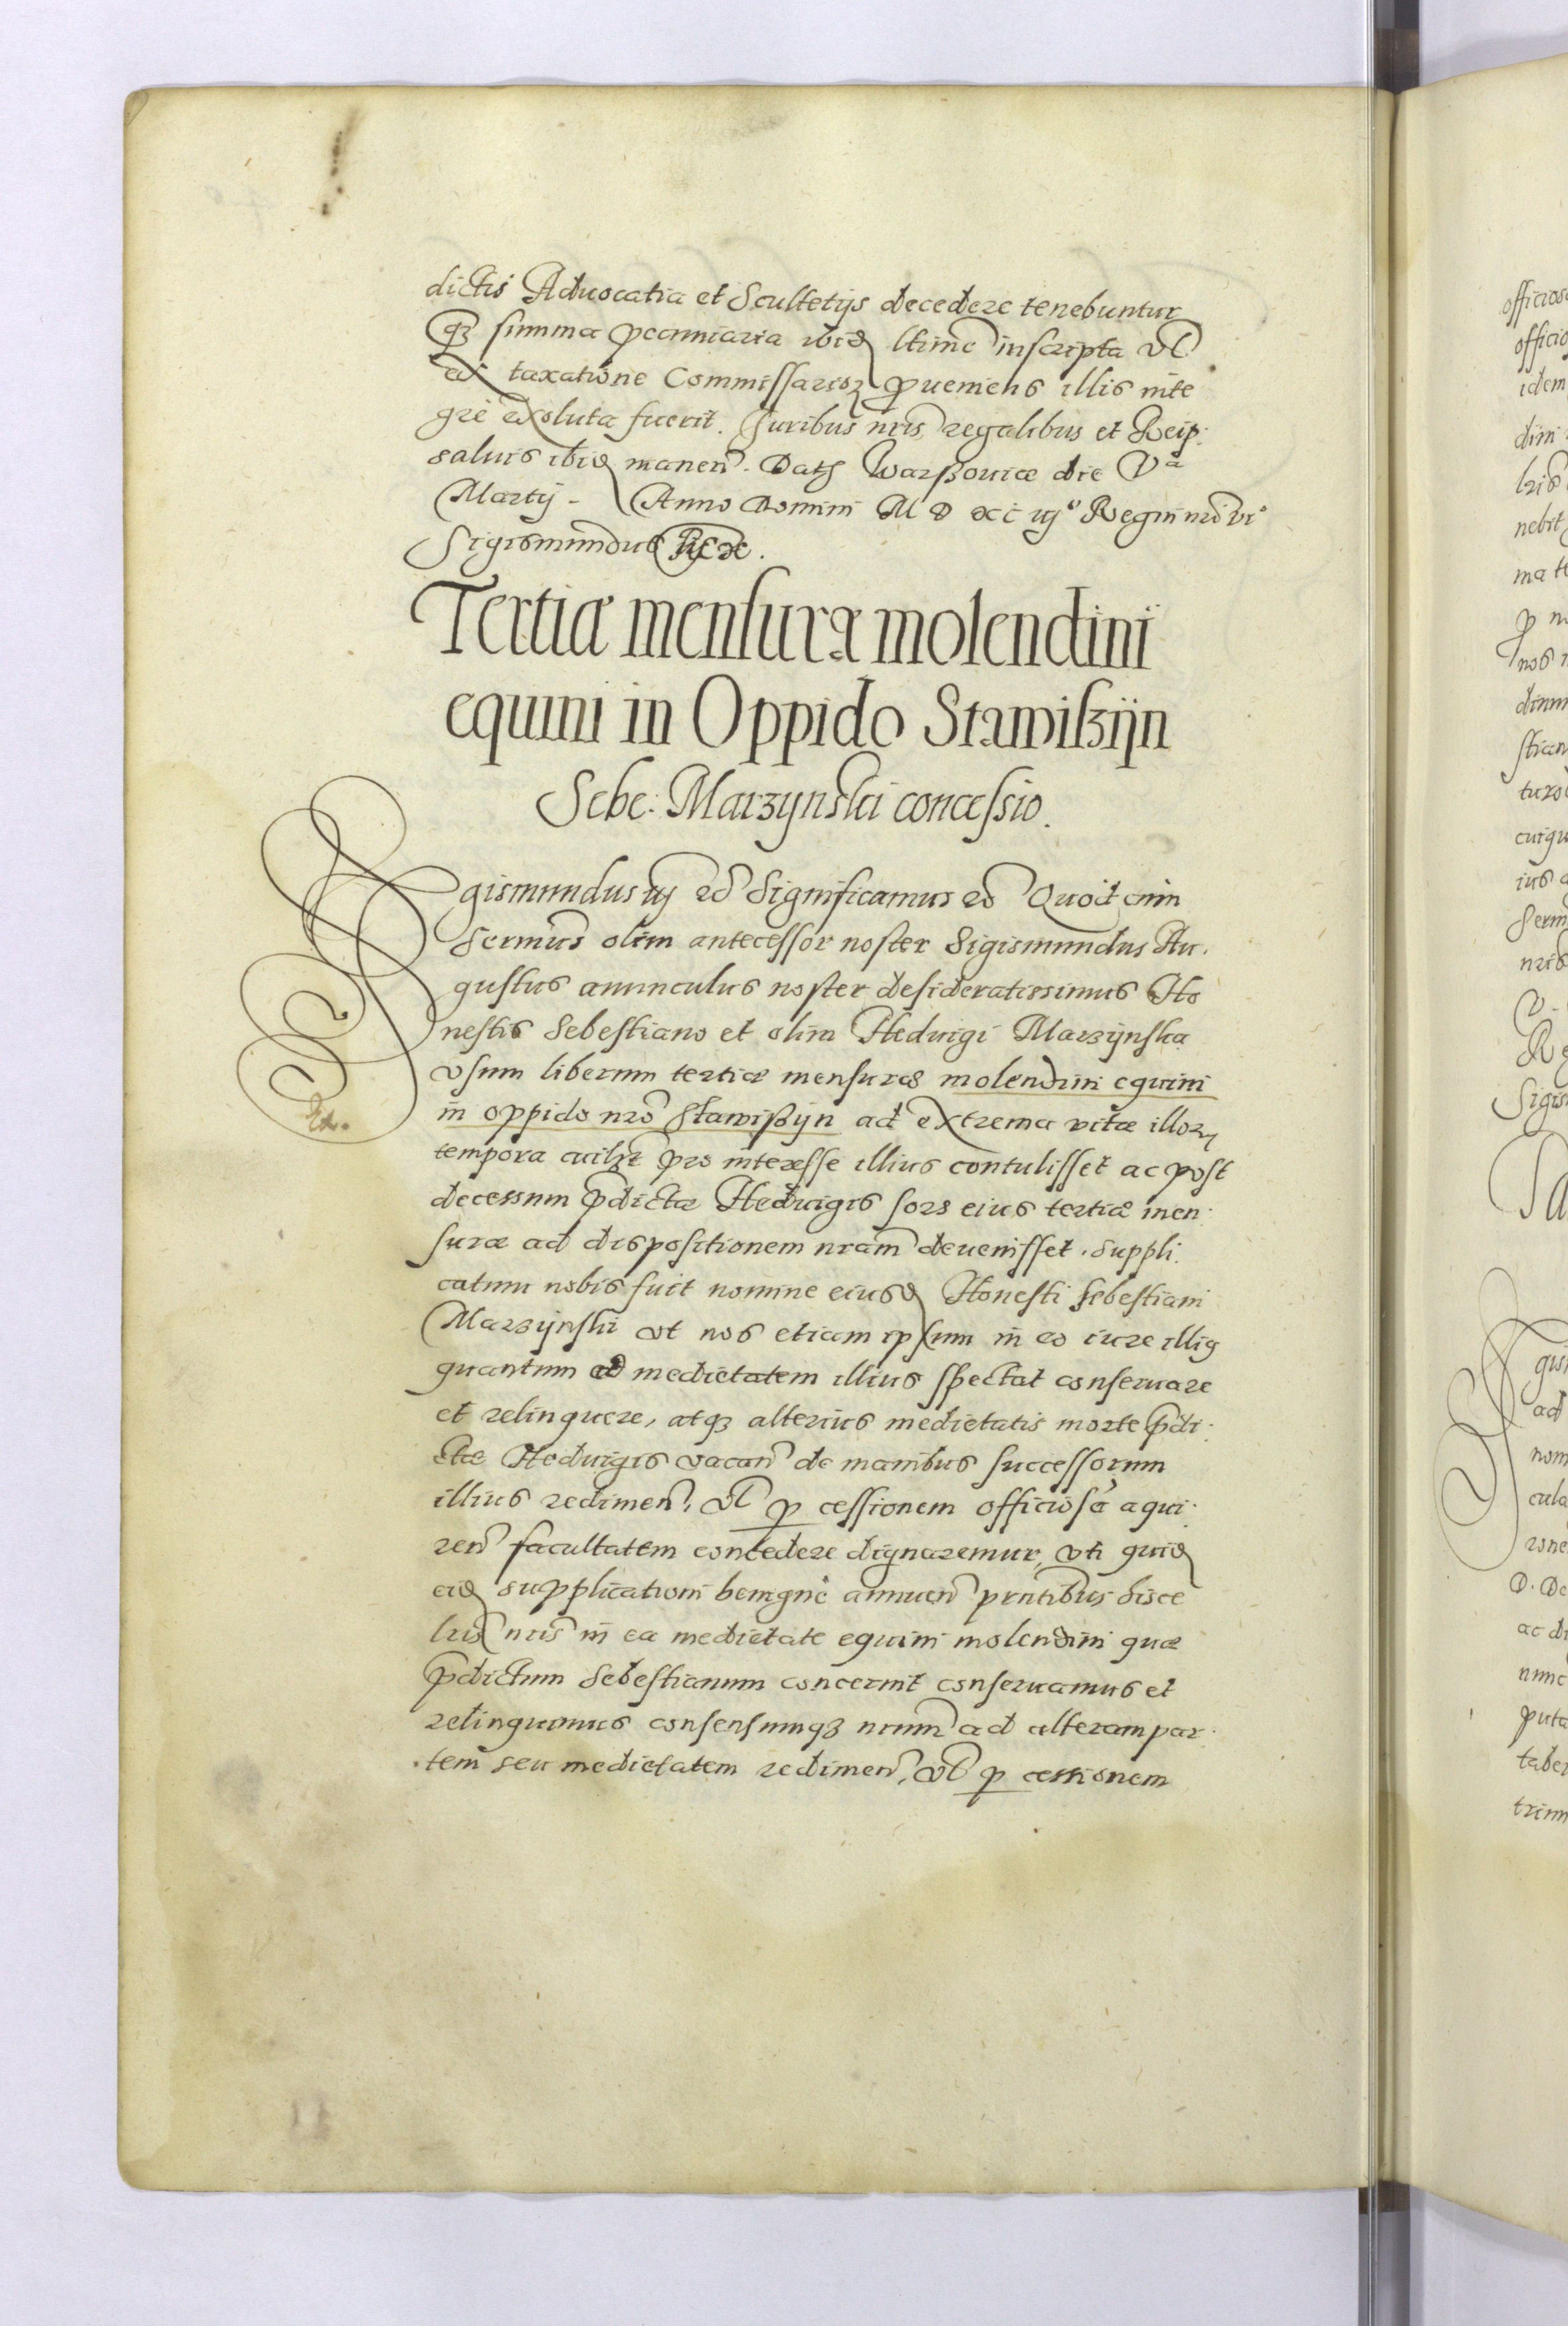 dictis Aduocatia et Scultetijs decedere tenebuntur
qz summa pecuniaria ibid ltime inscripta vl
ex taxatione Commissarior proueniens illis inte
gre exoluta fuerit. Juribus nris regalibus et Reip:
saluis ibid manen. Dat Warßouiæ die Va
Martij - Anno Domini M D XC iijo Regni nri vio
Sigismundus Rex.
Tertiæ mensuræ molendini
equini in Oppido Stawißijn
Sebe: Marzynski concessio.
Sigismundus iij &c Significamus &c Quod cum
Sermus olim antecessor noster Sigismundus Au.
gustus auunculus noster desideratissimus Ho
nestis Sebestiano et olim Heduigi Marzijnska
vsum liberum tertiæ mensuræ molendini equini
in oppido nro Stawißijn ad extrema vitæ illor
tempora pro interesse illius contulisset ac post
decessum pdictæ Heduigis sors eius tertiæ men.
suræ ad dispositionem nram deuenisset. suppli.
catum nobis fuit nomine eiusd Honesti Sebestiani
Marzijnski vt nos etiam ipsum in eo iure illig
quantum ad medietatem illius spectat conseruare
et relinquere, atqz alterius medietatis morte pdi.
ctæ Heduigis vacan de manibus successorum
illius redimen, vl p cessionem officiose aqui.
ren facultatem concedere dignaremur, vti quid
eid supplicationi benigne annuen pntibus disce
lris nris in ea medietate equini molendini quæ
pdictum Sebestianum concernit conseruamus et
relinquimus consensumqz nrum ad alteram par.
tem seu medietatem redimen, vl p cessionem
Ed.